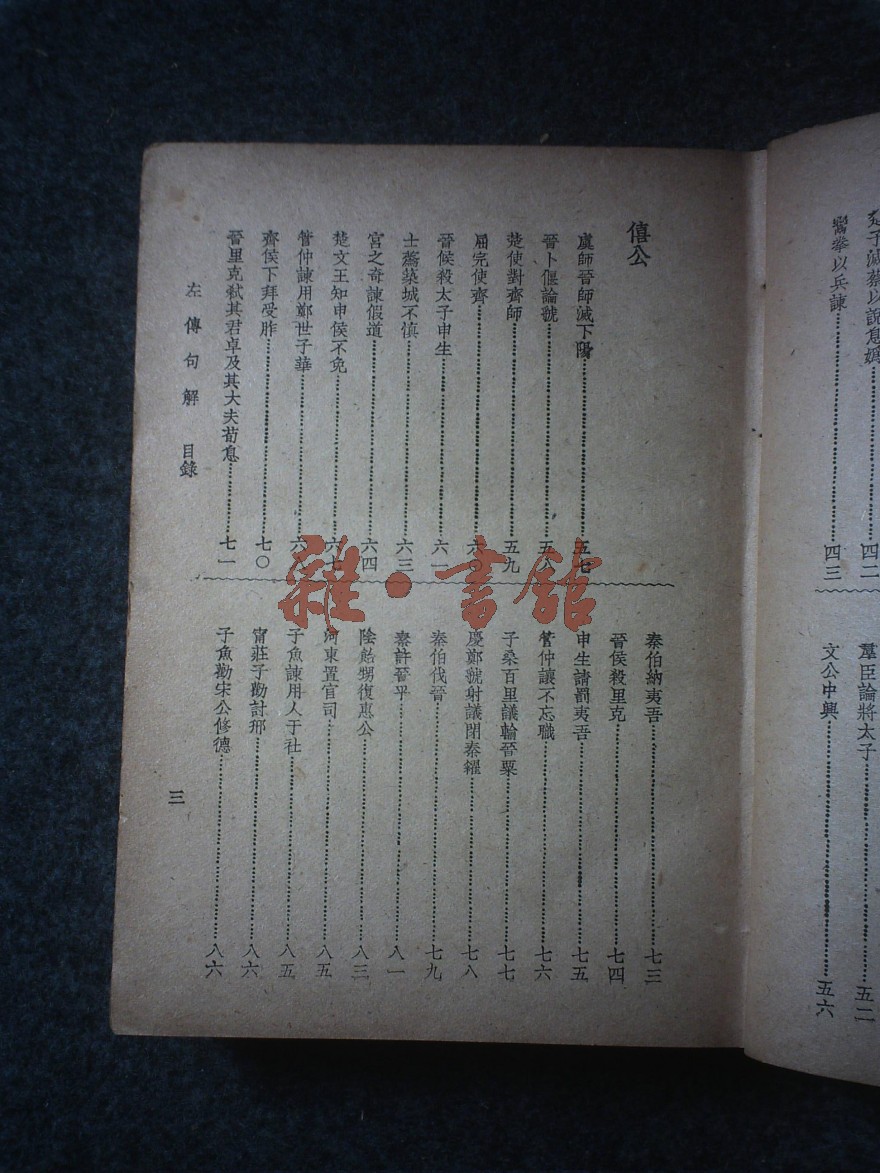 楚子滅蔡以說息嬀……四二
鬻拳以兵諫……四三
羣臣論將太子……五二
文公中興……五六
僖公
虞師晉師滅下陽……五七
晉卜偃論虢……五八
楚使對齊師……五九
屈完使齊……六〇
晉侯殺太子申生……六一
士蒍築城不慎……六三
宮之奇諫假道……六四
楚文王知申侯不免……六七
管仲諫用鄭世子華……六八
齊侯下拜受胙……七〇
晉里克弒其君卓及其大夫荀息……七一
秦伯納夷吾……七三
晉侯殺里克……七四
申生請罰夷吾……七五
管仲讓不忘職……七六
子桑百里議輸晉粟……七七
慶鄭虢射議閉秦糴……七八
秦伯伐晉……七九
秦許晉平……八一
陰飴甥復惠公……八三
河東置官司……八五
子魚諫用人于社……八五
甯莊子勸討邢……八六
子魚勸宋公修德……八六
左傳句解 目錄
三
雜·書館